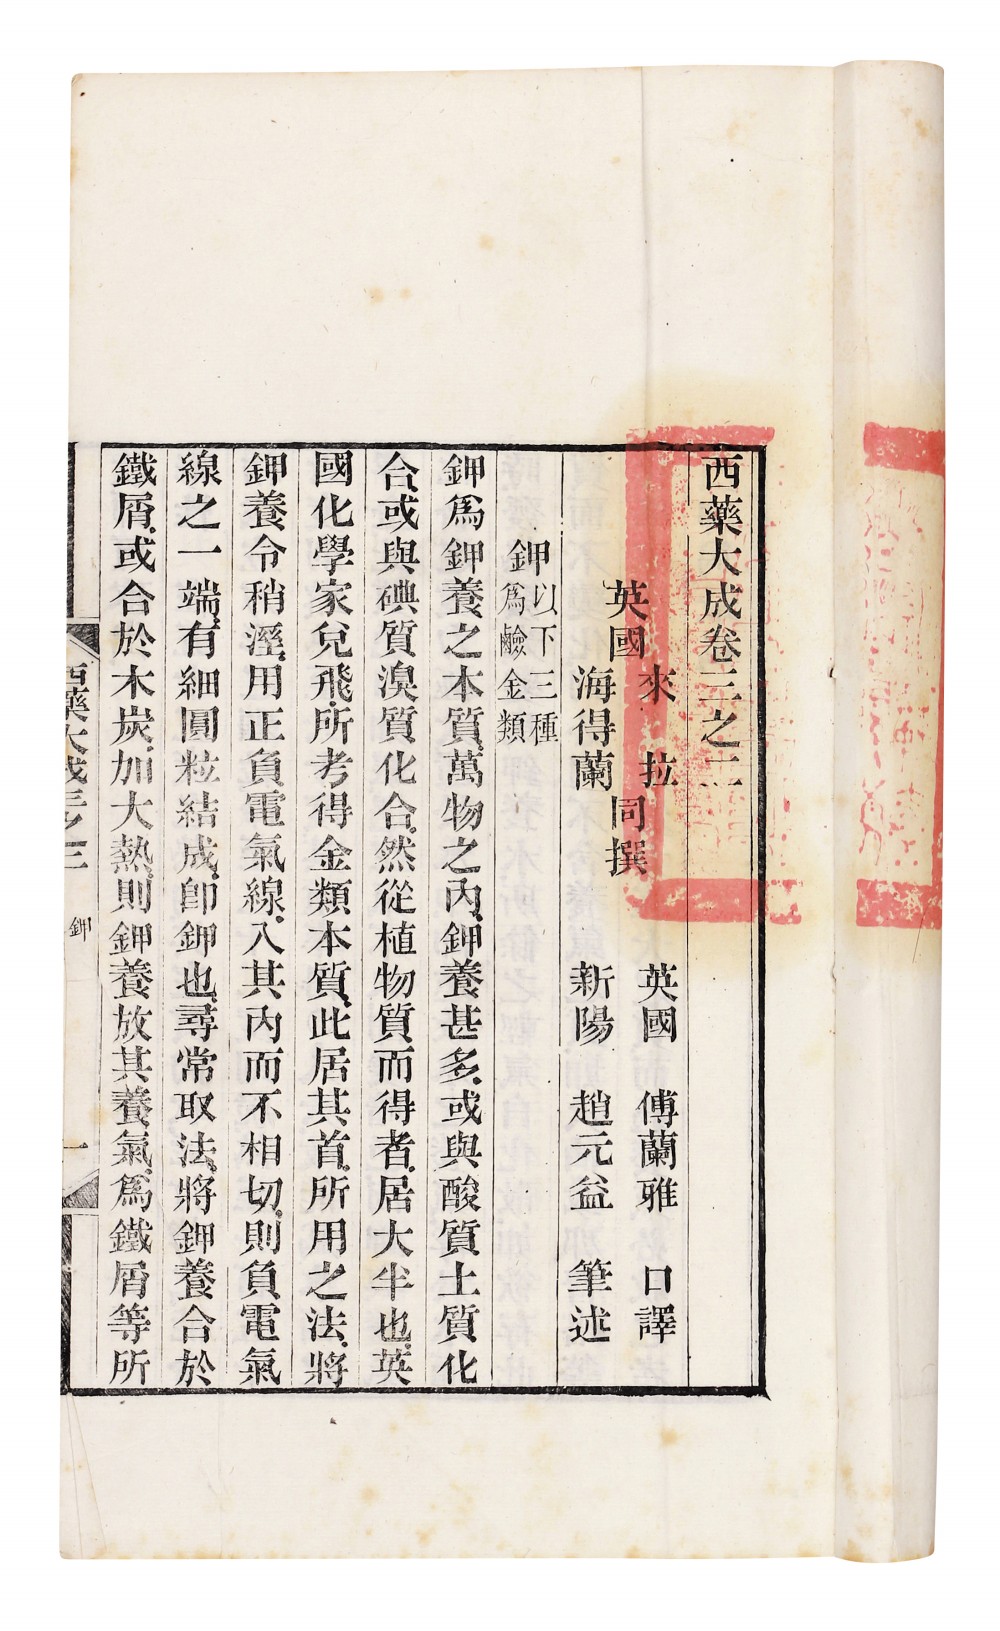 西藥大成卷三之二
英國 來拉 海得蘭 同撰
英國 傅蘭雅 口譯
新陽 趙元益 筆述
鉀 以下三種爲鹼金類
鉀爲鉀養之本質、萬物之內、鉀養甚多、或與酸質土質化
合、或與碘質溴質化合、然從植物質而得者、居大半也、英
國化學家兌飛、所考得金類本質、此居其首、所用之法、將
鉀養令稍溼、用正負電氣線、入其內而不相切、則負電氣
線之一端、有細圓粒結成、卽鉀也、尋常取法、將鉀養合於
鐵屑、或合於木炭、加大熱、則鉀養放其養氣、爲鐵屑等所
西藥大成三之二
鉀
一